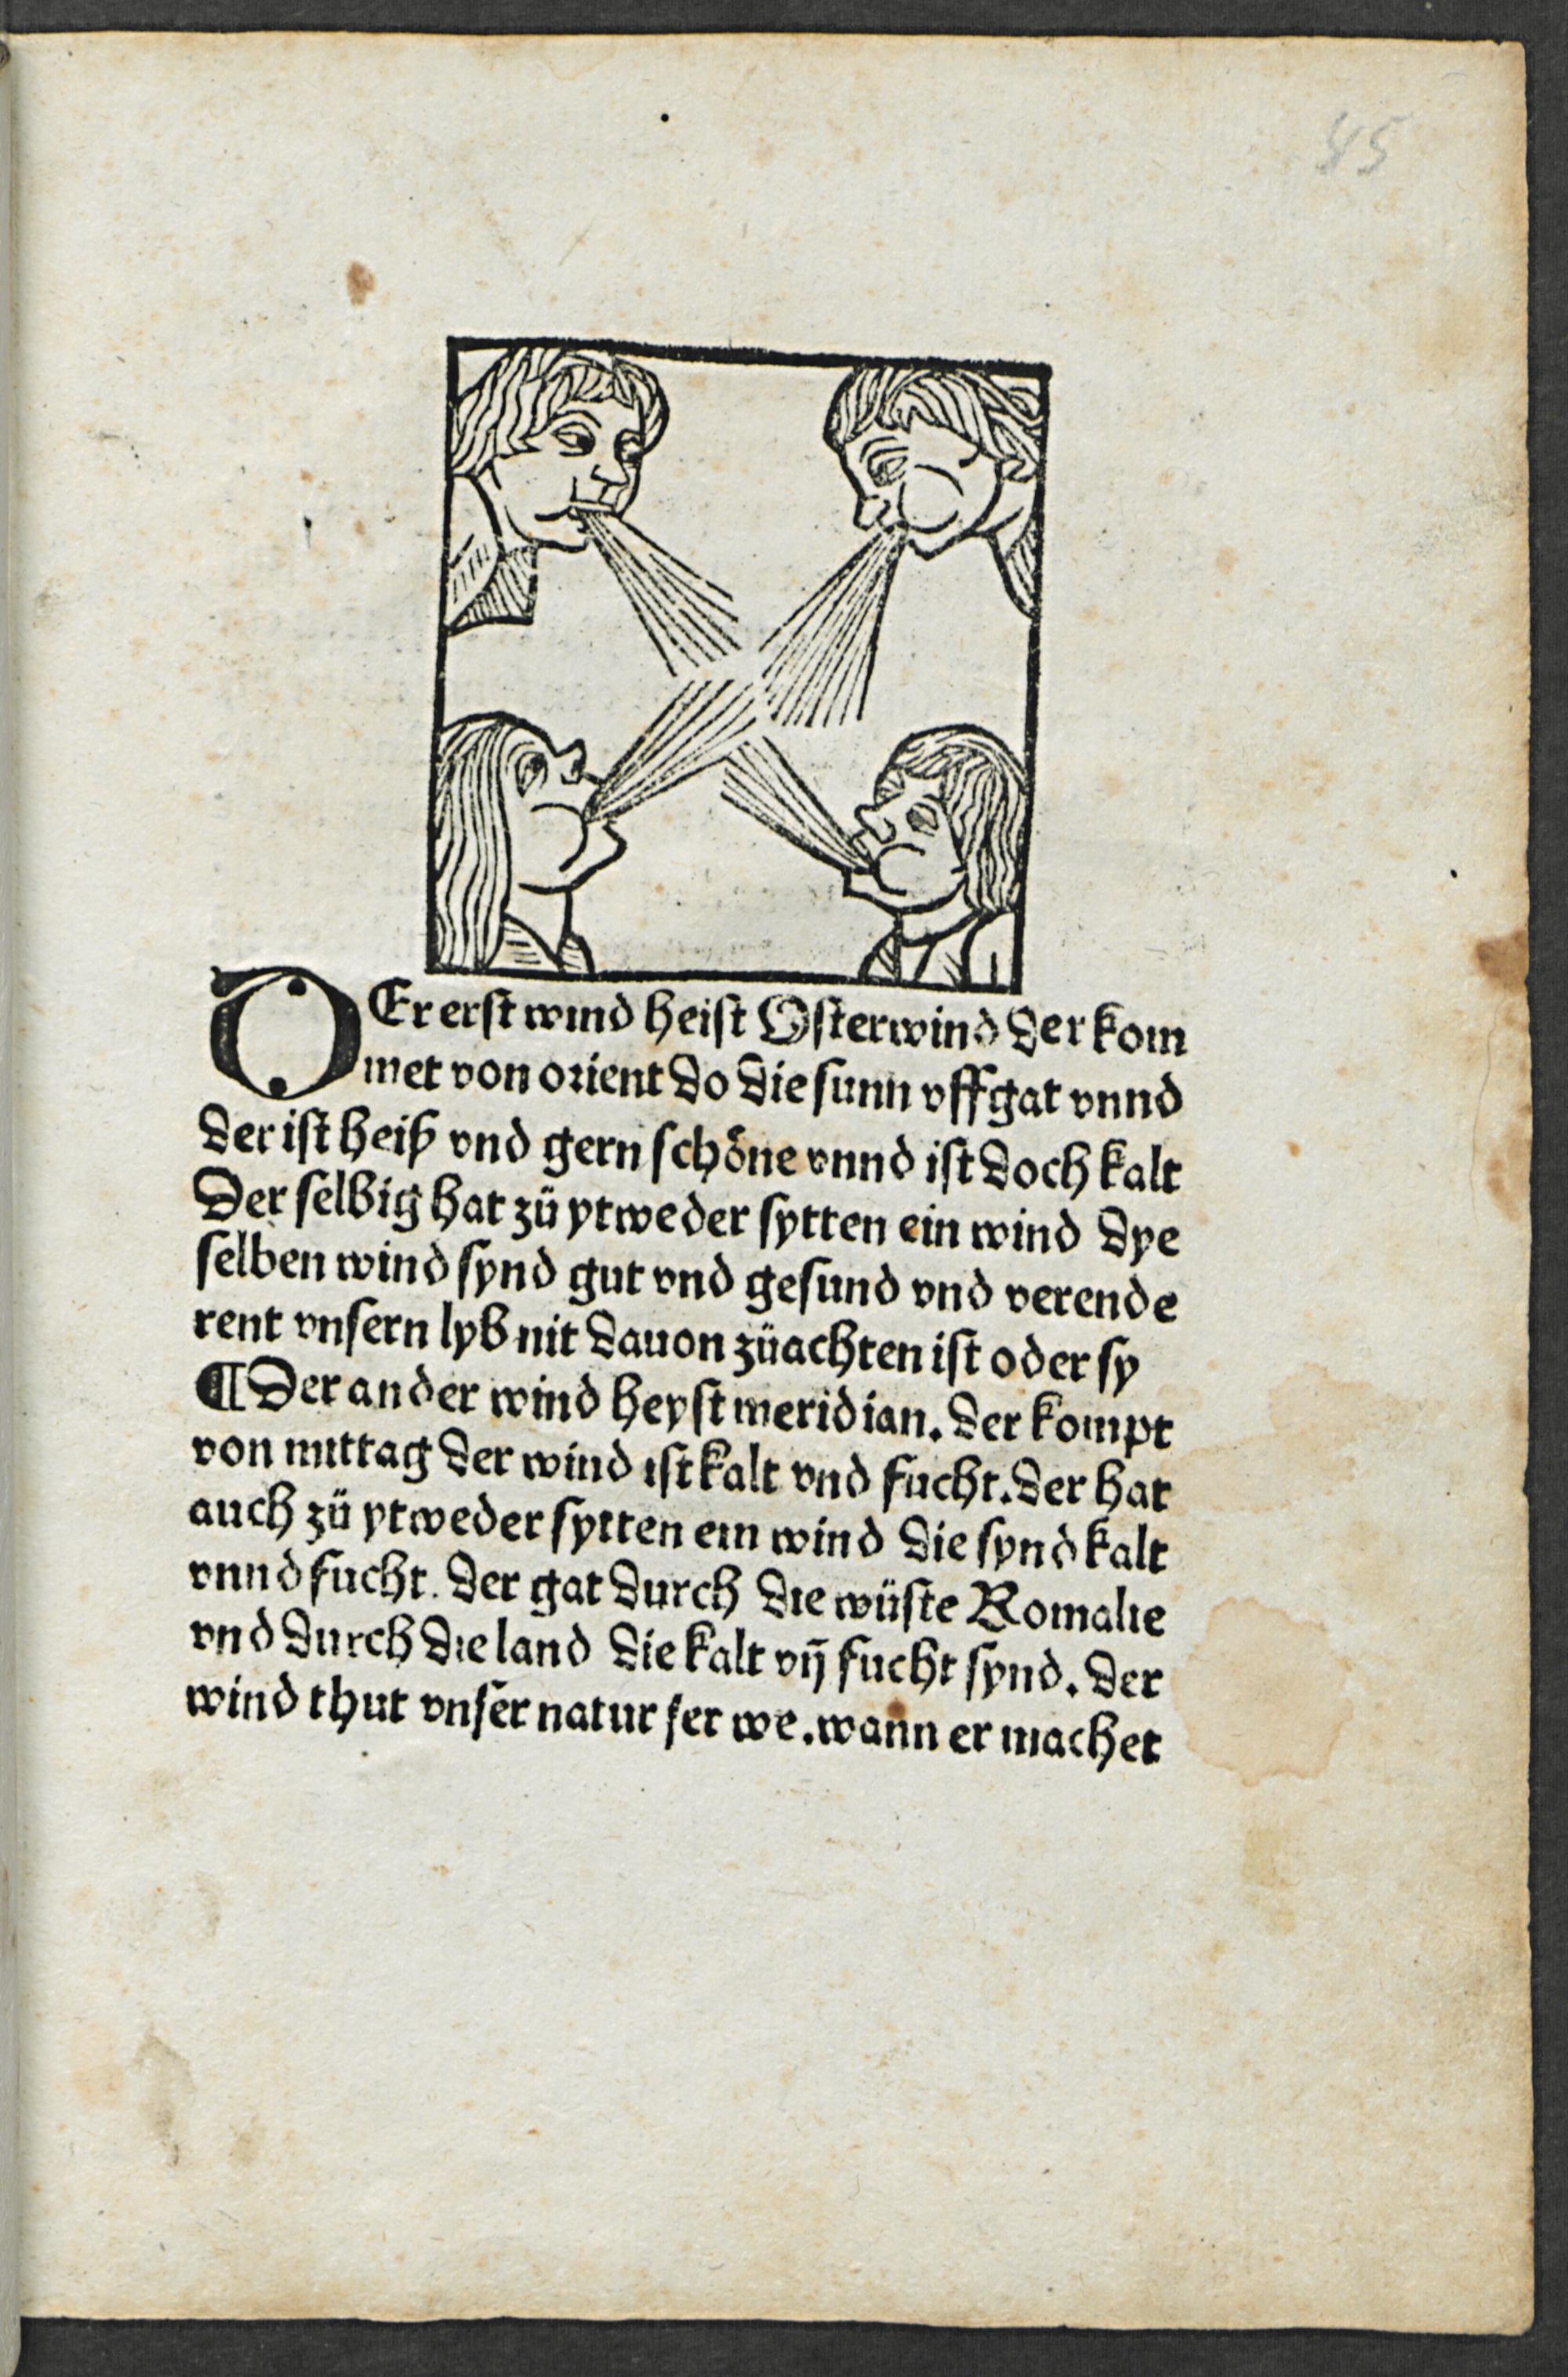 85
DEr erst wind heist Osterwind der kom
met von orient do die sunn vffgat vnnd
der ist heiß vnd gern schöne vnnd ist doch kalt
Der selbig hat zü ytweder sytten ein wind dye
selben wind synd gut vnd gesund vnd verende
rent vnsern lyb nit dauon züachten ist oder sy
¶ Der ander wind heyst meridian. der kompt
von mittag der wind ist kalt vnd fucht. der hat
auch zü ytweder sytten ein wind die synd kalt
vnnd fucht. der gat durch die wüste Romalie
vnd durch die land die kalt vñ fucht synd. der
wind thut vnser natur ser we. wann er machet